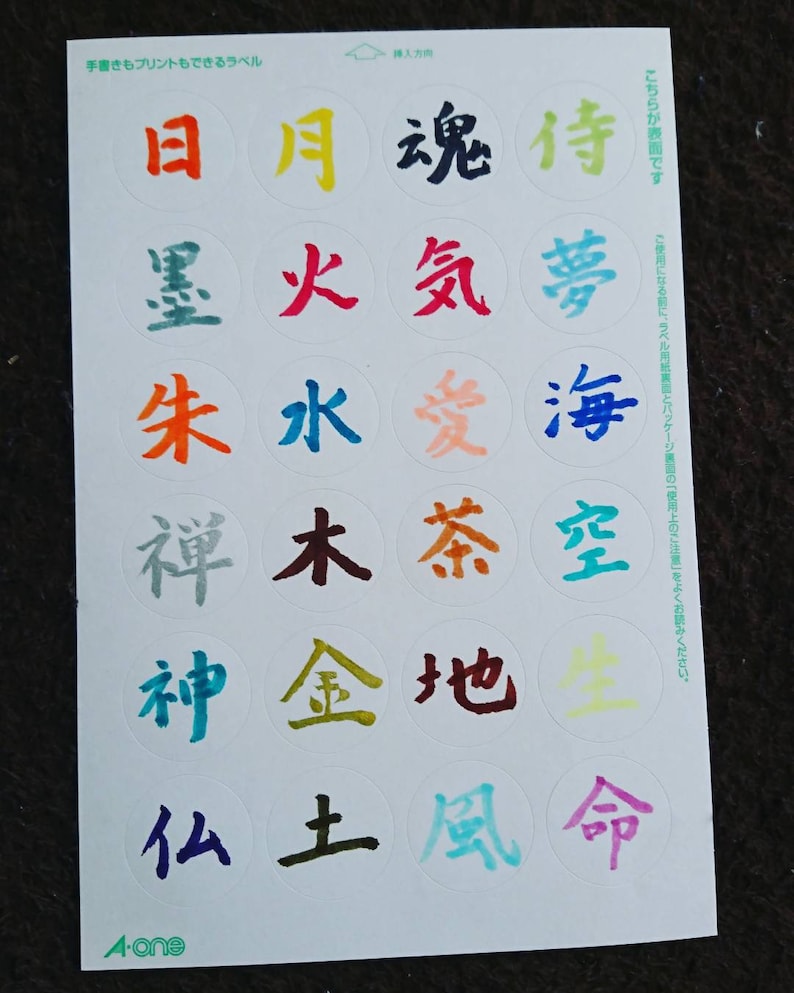 手書きもプリントもできるラベル
挿入方向
こちらが表面です
ご使用になる前に、ラベル用紙裏面とパッケージ裏面の「使用上のご注意」をよくお読みください。
日 月 魂 侍
墨 火 気 夢
朱 水 愛 海
禅 木 茶 空
神 金 地 生
仏 土 風 命
A・one